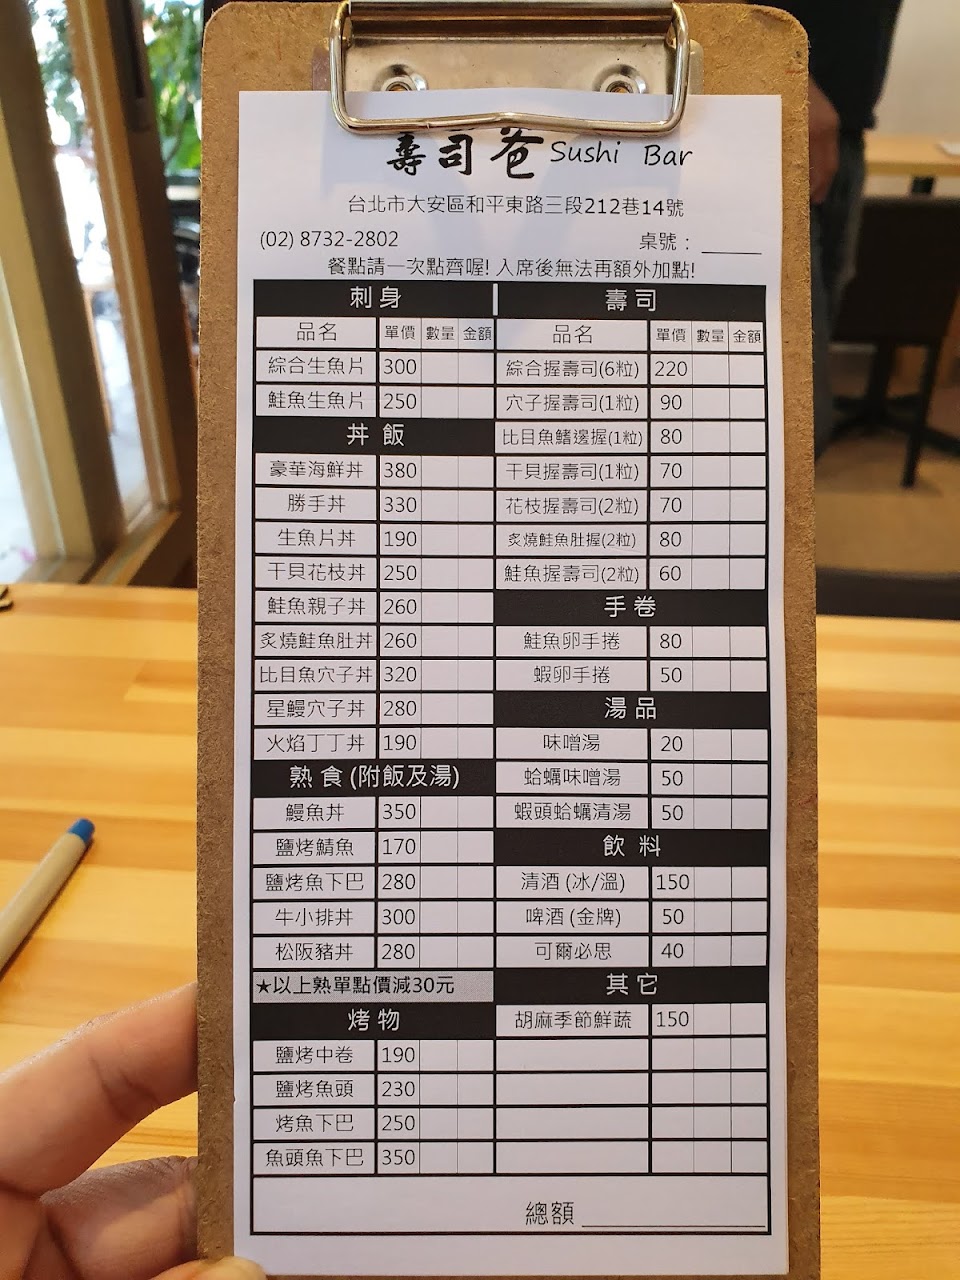 壽司爸 Sushi Bar
台北市大安區和平東路三段212巷14號
(02) 8732-2802 桌號：
餐點請一次點齊喔! 入席後無法再額外加點!
刺身
品名 單價 數量 金額
綜合生魚片 300
鮭魚生魚片 250
丼飯
豪華海鮮丼 380
勝手丼 330
生魚片丼 190
干貝花枝丼 250
鮭魚親子丼 260
炙燒鮭魚肚丼 260
比目魚穴子丼 320
星鰻穴子丼 280
火焰丁丁丼 190
熟食(附飯及湯)
鰻魚丼 350
鹽烤鯖魚 170
鹽烤魚下巴 280
牛小排丼 300
松阪豬丼 280
★以上熟單點價減30元
烤物
鹽烤中卷 190
鹽烤魚頭 230
烤魚下巴 250
魚頭魚下巴 350
壽司
品名 單價 數量 金額
綜合握壽司(6粒) 220
穴子握壽司(1粒) 90
比目魚鰭邊握(1粒) 80
干貝握壽司(1粒) 70
花枝握壽司(2粒) 70
炙燒鮭魚肚握(2粒) 80
鮭魚握壽司(2粒) 60
手卷
鮭魚卵手捲 80
蝦卵手捲 50
湯品
味噌湯 20
蛤蠣味噌湯 50
蝦頭蛤蠣清湯 50
飲料
清酒(冰/溫) 150
啤酒(金牌) 50
可爾必思 40
其它
胡麻季節鮮蔬 150
總額